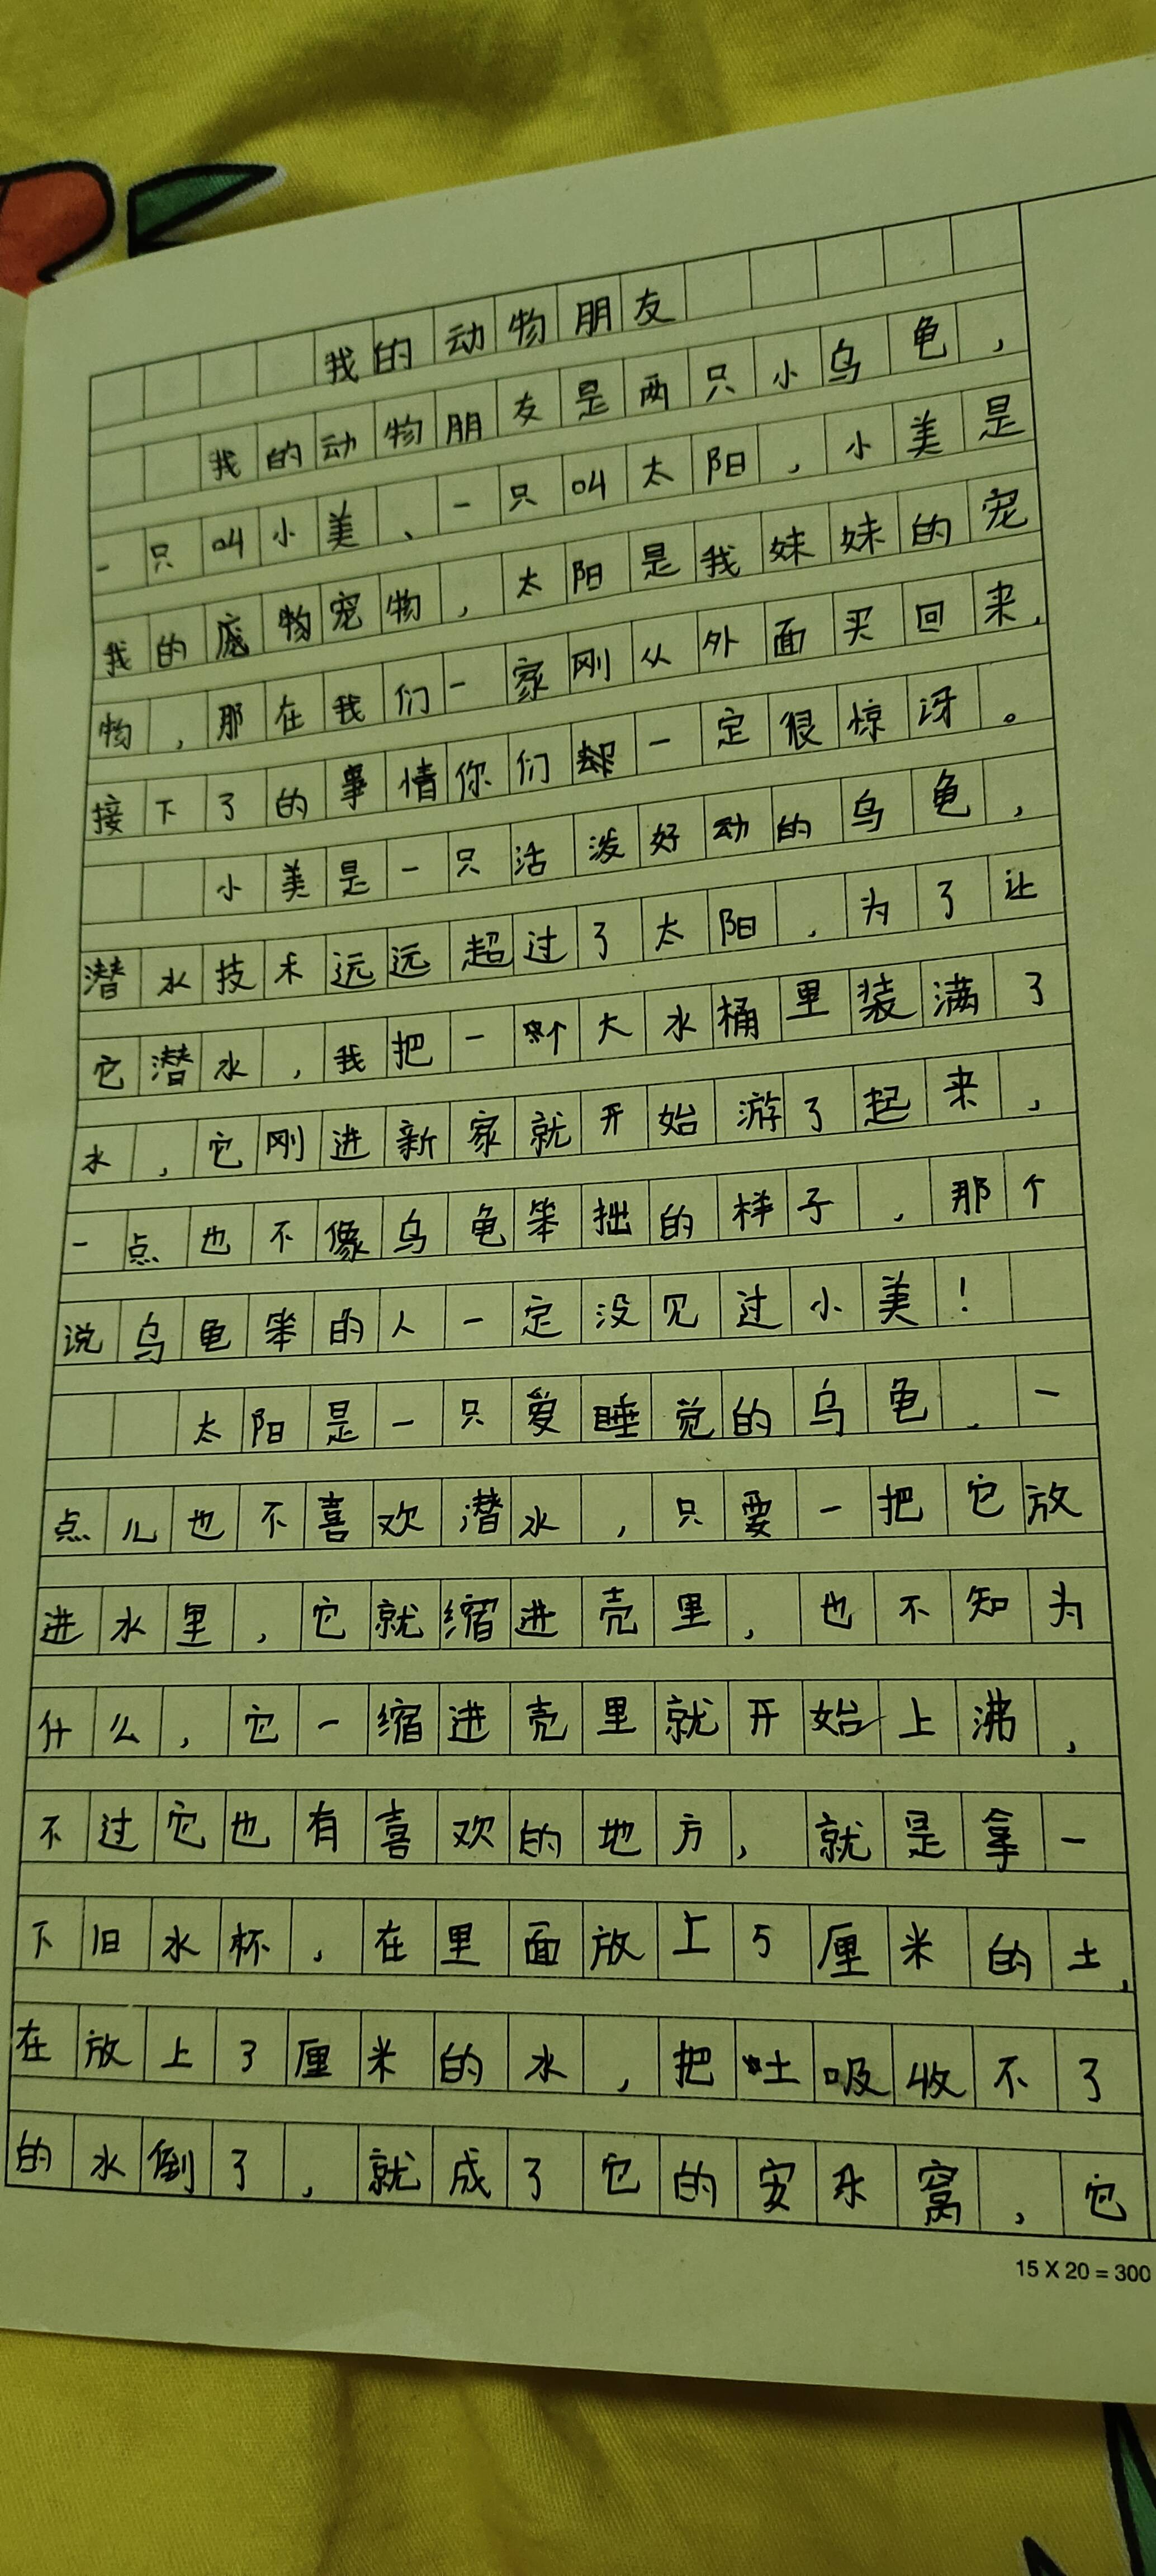 我的动物朋友
我的动物朋友是两只小乌龟，
一只叫小美、一只叫太阳，小美是
我的宠物，太阳是我妹妹的宠
物，那在我们一家刚从外面买回来，
接下了的事情你们一定很惊讶。
小美是一只活泼好动的乌龟，
潜水技术远远超过了太阳，为了让
它潜水，我把一个大水桶里装满了
水，它刚进新家就开始游了起来，
一点也不像乌龟笨拙的样子，那个
说乌龟笨的人一定没见过小美！
太阳是一只爱睡觉的乌龟，一
点儿也不喜欢潜水，只要一把它放
进水里，它就缩进壳里，也不知为
什么，它一缩进壳里就开始上沸，
不过它也有喜欢的地方，就是拿一
下旧水杯，在里面放上5厘米的土，
在放上3厘米的水，把土吸收不了
的水倒了，就成了它的安乐窝，它
15 X 20 = 300